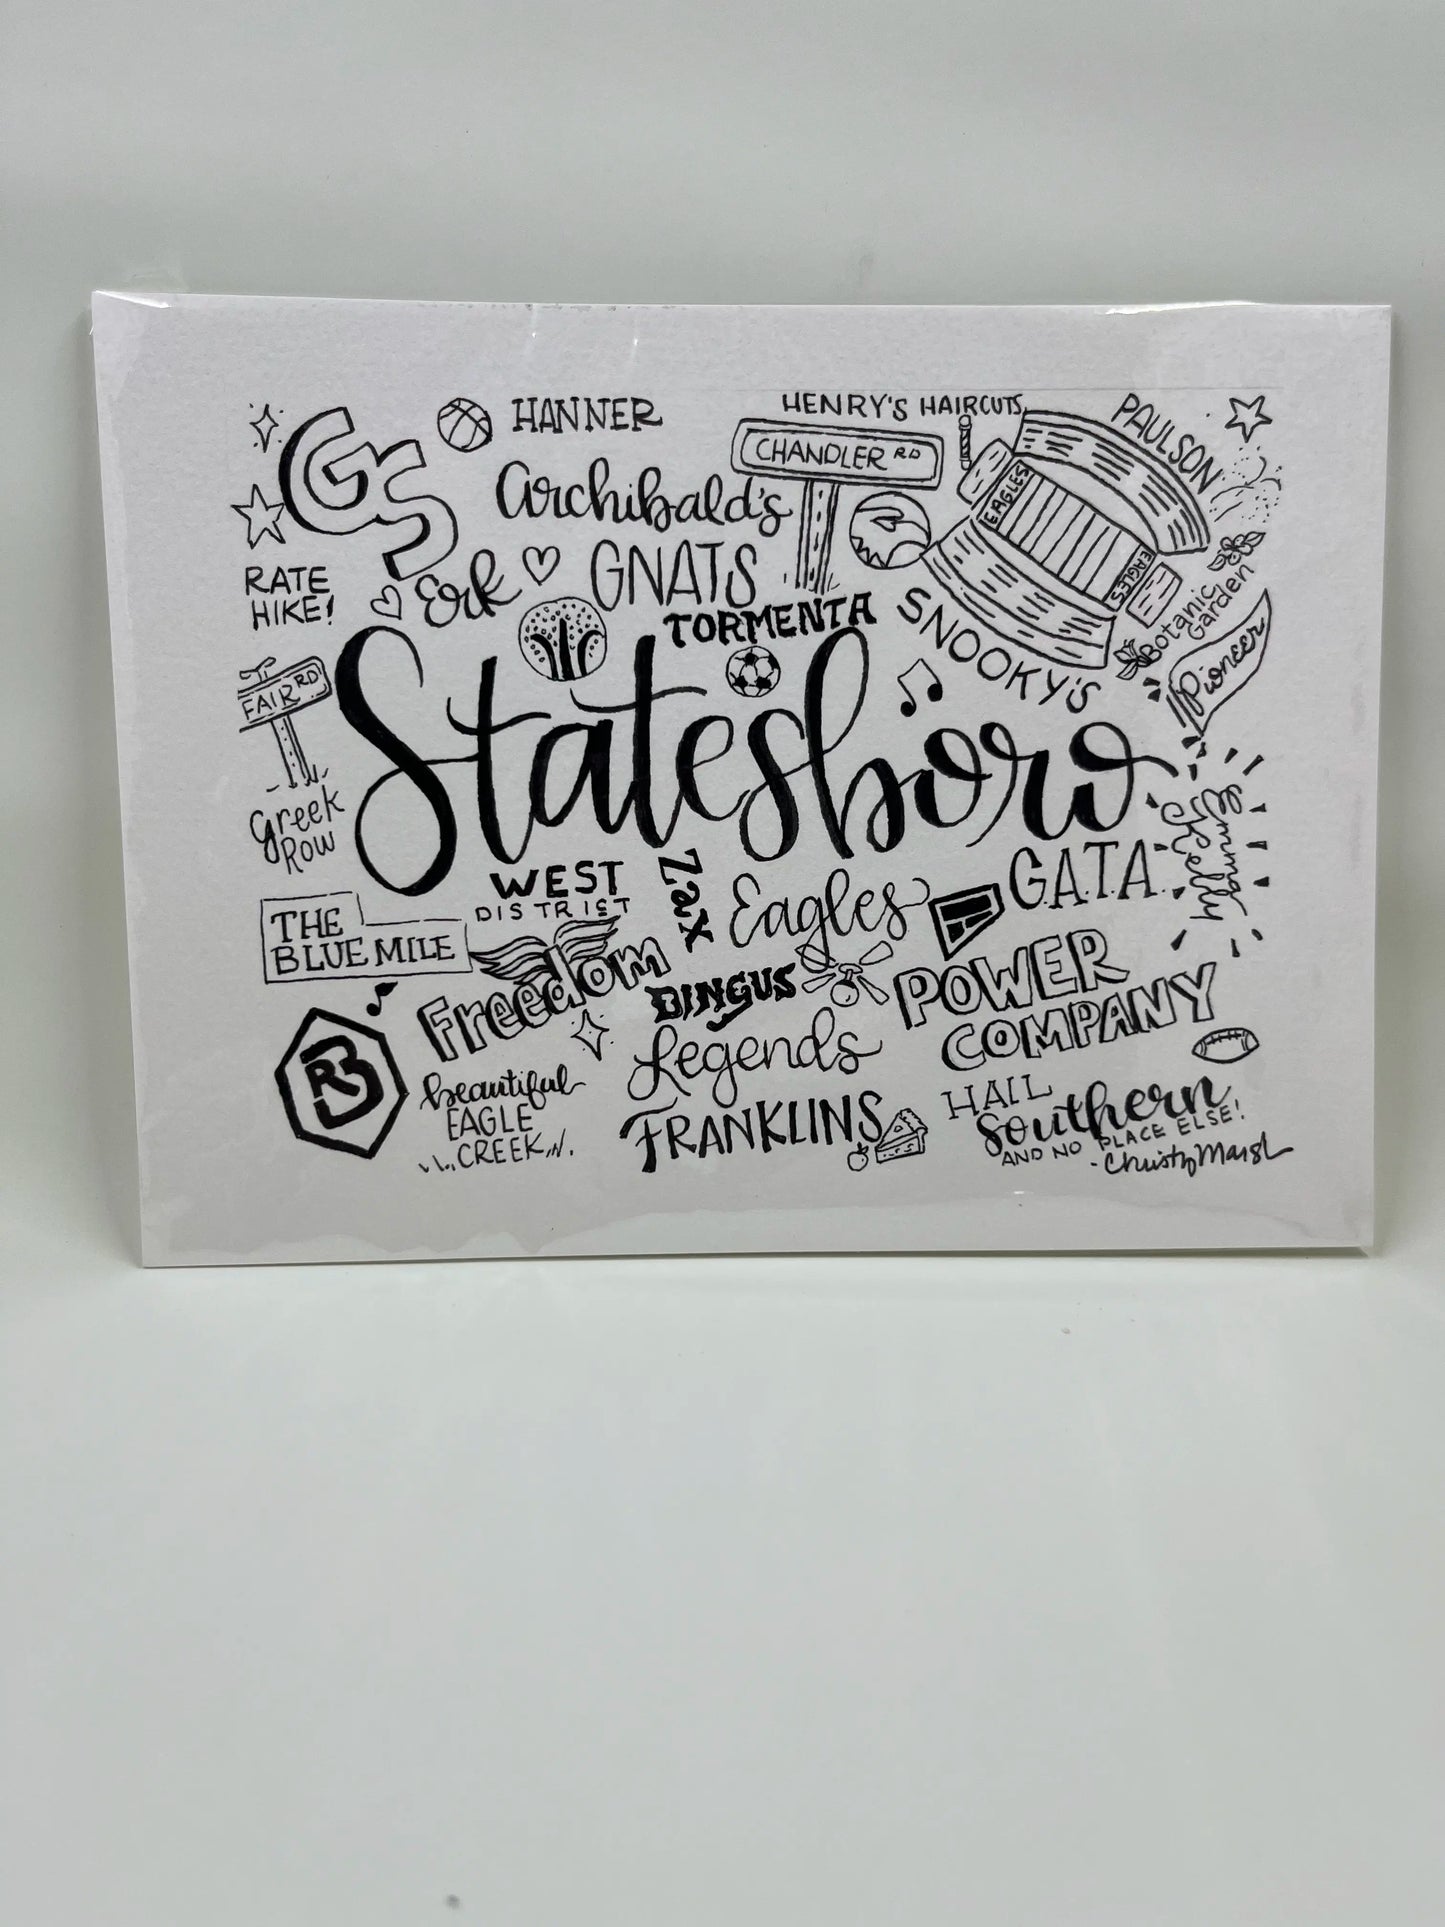 GS
HANNER
HENRY'S HAIRCUTS
CHANDLER RD
PAULSON
Archibald's
EAGLES
EAGLES
RATE
HIKE!
Erk
GNATS
TORMENTA
SNOOKY'S
Botanic
Garden
Pioneer
FAIR RD
Statesboro
Greek
Row
WEST
DISTRICT
Zax
Eagles
G.A.T.A.
Emma
Kelly
THE
BLUE MILE
Freedom
DINGUS
POWER
COMPANY
Legends
beautiful
EAGLE
CREEK
FRANKLINS
HAIL
Southern
AND NO PLACE ELSE!
-Christy Marsh